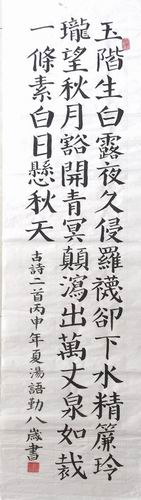 玉階生白露夜久侵羅襪卻下水精簾玲
瓏望秋月豁開青冥顛瀉出萬丈泉如裁
一條素白日懸秋天
古詩二首丙申年夏湯語勤八歲書